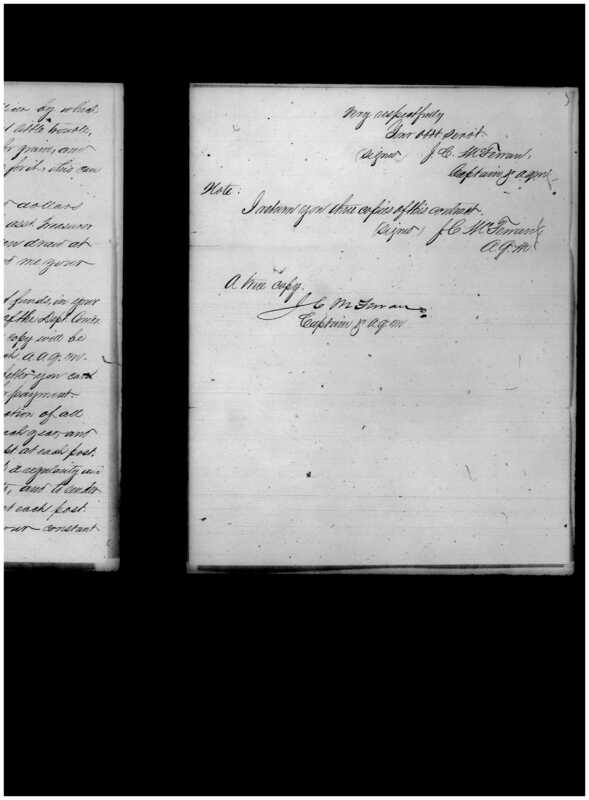 year by which
and
for grain, and
dollars
asst Treasurer
can draw at
me your
funds, in your
of the Dept. Comdr
copy will be
a.a.q.m.
letter you can
payment.
of all
and
at each post.
regularity in
and to render
at each post
your constant
5
Very respectfully
Your obt Servt
(Signed) J. C. McFerran,
Captain & a.q.m.
Note:
I return you three copies of this contract.
(Signed) J C McFerran
A.q.m.
A true copy.
J C McFerran
Captain & a.q.m